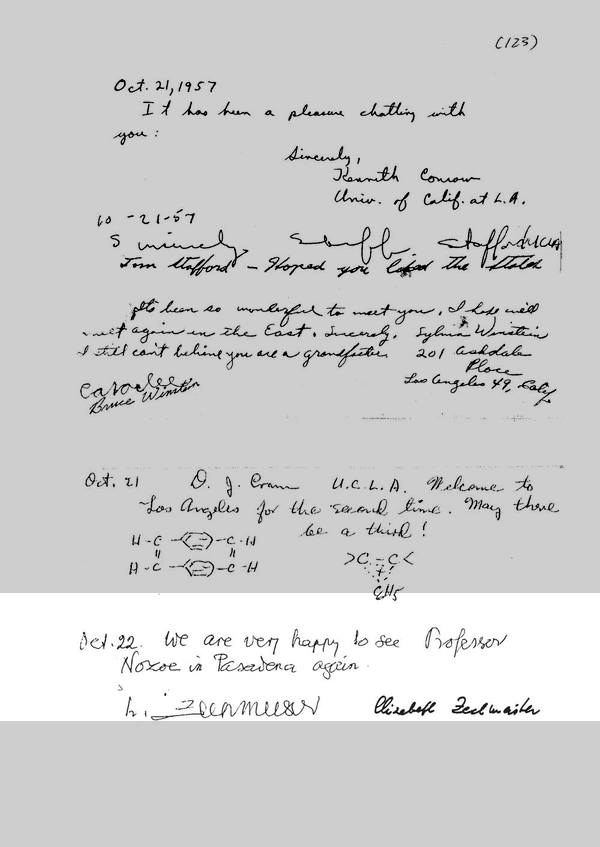 (123)
Oct. 21, 1957
It has been a pleasure chatting with
you:
Sincerely,
Kenneth Conrow
Univ. of Calif. at L.A.
10-21-57
Sincerely, Stafford UCLA
Tom Stafford - Hoped you liked the States
Its been so wonderful to meet you. I hope we'll
meet again in the East. Sincerely, Sylvia Winstein
I still can't believe you are a grandfather. 201 Ashdale
Place
Los Angeles 49, Calif.
Carolee
Bruce Winstein
Oct. 21 D. J. Cram U.C.L.A. Welcome to
Los Angeles for the second time. May there
be a third!
H-C C-H
H-C C-H
>C C<
+
C6H5
Oct. 22. We are very happy to see Professor
Nozoe in Pasadena again.
L. Zechmeister Elizabeth Zechmeister